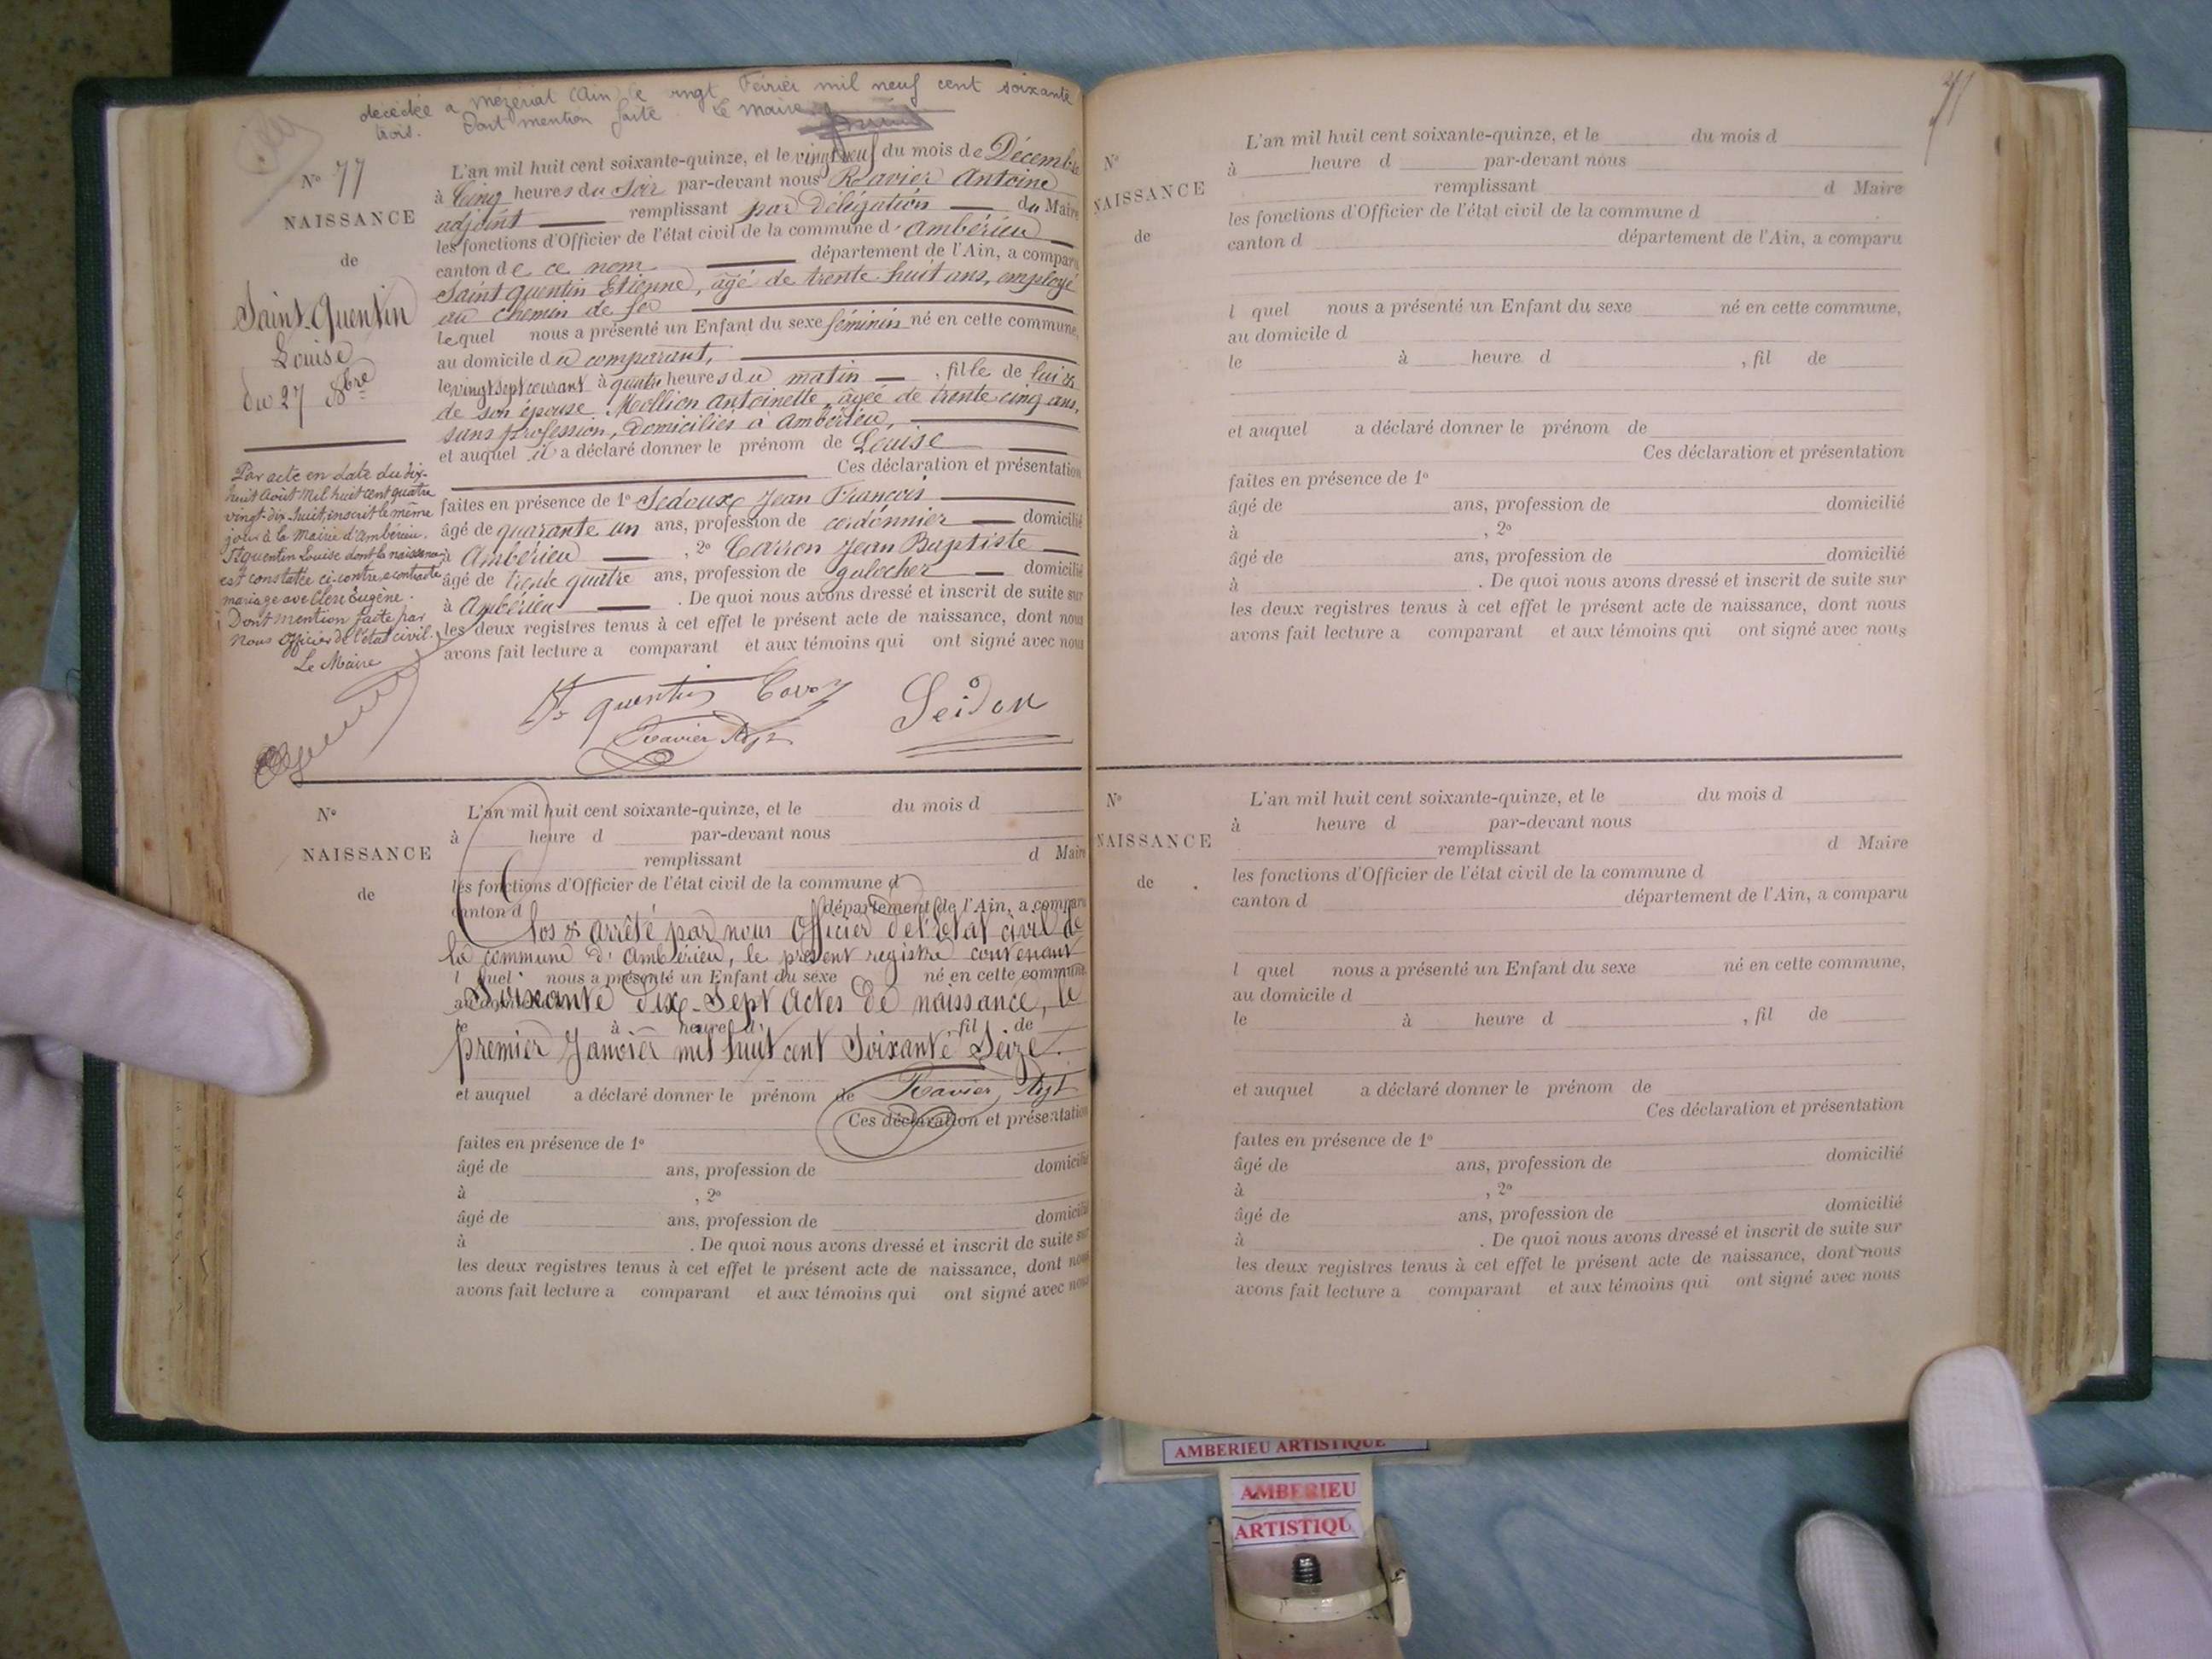 décédée a Mézériat (Ain) le vingt Février mil neuf cent soixante
trois. Dont mention faite. Le Maire
N° 77
NAISSANCE
de
Saint-Quentin
Louise
du 27 Xbre
L'an mil huit cent soixante-quinze, et le vingt neuf du mois de Décembre
à Cinq heures du Soir par-devant nous Ravier Antoine
adjoint remplissant par délégation du Maire
les fonctions d'Officier de l'état civil de la commune d'Ambérieu
canton de ce nom département de l'Ain, a comparu
Saint quentin Etienne, âgé de trente huit ans, employé
au chemin de fer
lequel nous a présenté un Enfant du sexe féminin né en cette commune,
au domicile du comparant,
le vingt sept courant à quatre heures du matin , fille de lui &
de son épouse Mollion Antoinette, âgée de trente cinq ans,
sans profession, domiciliés à Ambérieu,
et auquel il a déclaré donner le prénom de Louise
Ces déclaration et présentation
faites en présence de 1° Jean François
âgé de quarante un ans, profession de cordonnier domicilié
à Ambérieu , 2° Carron Jean Baptiste
âgé de trente quatre ans, profession de galocher domicilié
à Ambérieu . De quoi nous avons dressé et inscrit de suite sur
les deux registres tenus à cet effet le présent acte de naissance, dont nous
avons fait lecture a comparant et aux témoins qui ont signé avec nous
Par acte en date du dix-
huit Août Mil huit cent quatre
vingt-dix-huit, inscrit le même
jour à la Mairie d'Ambérieu.
St quentin Louise dont la naissance
est constatée ci-contre a contracté
mariage avec Clerc Eugène.
Dont mention faite par
Nous Officier de l'état civil.
Le Maire
St quentin
Ravier Adjt
N°
NAISSANCE
de
L'an mil huit cent soixante-quinze, et le du mois d
à heure d par-devant nous
remplissant d Maire
les fonctions d'Officier de l'état civil de la commune d
canton d département de l'Ain, a comparu
Clos & arrêté par nous Officier de l'état civil de
la commune d'Ambérieu, le présent registre contenant
l quel nous a présenté un Enfant du sexe né en cette commune,
au domicile d
Soixante Dix-Sept actes de naissance, le
le à heure d , fil de
premier Janvier mil huit cent Soixante Seize.
Ravier, Adjt
et auquel a déclaré donner le prénom de
Ces déclaration et présentation
faites en présence de 1°
âgé de ans, profession de domicilié
à , 2°
âgé de ans, profession de domicilié
à . De quoi nous avons dressé et inscrit de suite sur
les deux registres tenus à cet effet le présent acte de naissance, dont nous
avons fait lecture a comparant et aux témoins qui ont signé avec nous
N°
NAISSANCE
de
L'an mil huit cent soixante-quinze, et le du mois d
à heure d par-devant nous
remplissant d Maire
les fonctions d'Officier de l'état civil de la commune d
canton d département de l'Ain, a comparu
l quel nous a présenté un Enfant du sexe né en cette commune,
au domicile d
le à heure d , fil de
et auquel a déclaré donner le prénom de
Ces déclaration et présentation
faites en présence de 1°
âgé de ans, profession de domicilié
à , 2°
âgé de ans, profession de domicilié
à . De quoi nous avons dressé et inscrit de suite sur
les deux registres tenus à cet effet le présent acte de naissance, dont nous
avons fait lecture a comparant et aux témoins qui ont signé avec nous
N°
NAISSANCE
de
L'an mil huit cent soixante-quinze, et le du mois d
à heure d par-devant nous
remplissant d Maire
les fonctions d'Officier de l'état civil de la commune d
canton d département de l'Ain, a comparu
l quel nous a présenté un Enfant du sexe né en cette commune,
au domicile d
le à heure d , fil de
et auquel a déclaré donner le prénom de
Ces déclaration et présentation
faites en présence de 1°
âgé de ans, profession de domicilié
à , 2°
âgé de ans, profession de domicilié
à . De quoi nous avons dressé et inscrit de suite sur
les deux registres tenus à cet effet le présent acte de naissance, dont nous
avons fait lecture a comparant et aux témoins qui ont signé avec nous
AMBERIEU ARTISTIQUE
AMBERIEU
ARTISTIQU